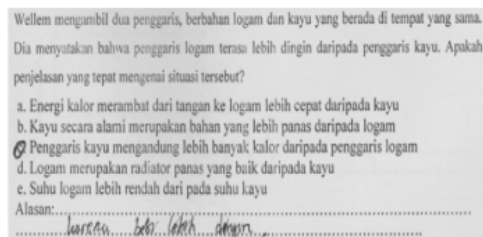 Wellem mengambil dua penggaris, berbahan logam dan kayu yang berada di tempat yang sama.
Dia menyatakan bahwa penggaris logam terasa lebih dingin daripada penggaris kayu. Apakah
penjelasan yang tepat mengenai situasi tersebut?
a. Energi kalor merambat dari tangan ke logam lebih cepat daripada kayu
b. Kayu secara alami merupakan bahan yang lebih panas daripada logam
Penggaris kayu mengandung lebih banyak kalor daripada penggaris logam
d. Logam merupakan radiator panas yang baik daripada kayu
e. Suhu logam lebih rendah dari pada suhu kayu
Alasan:
karena lebih dingin